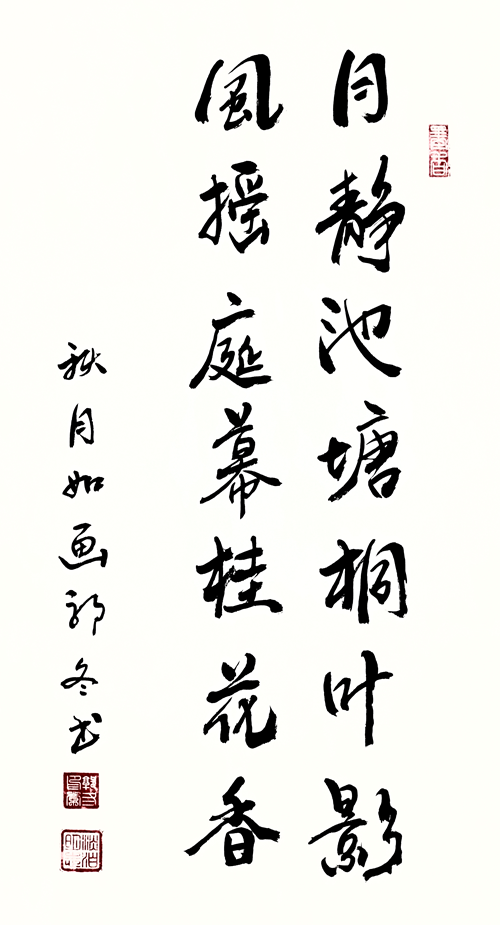 月静池塘桐叶影
風摇庭幕桂花香
秋月如画郭冬书